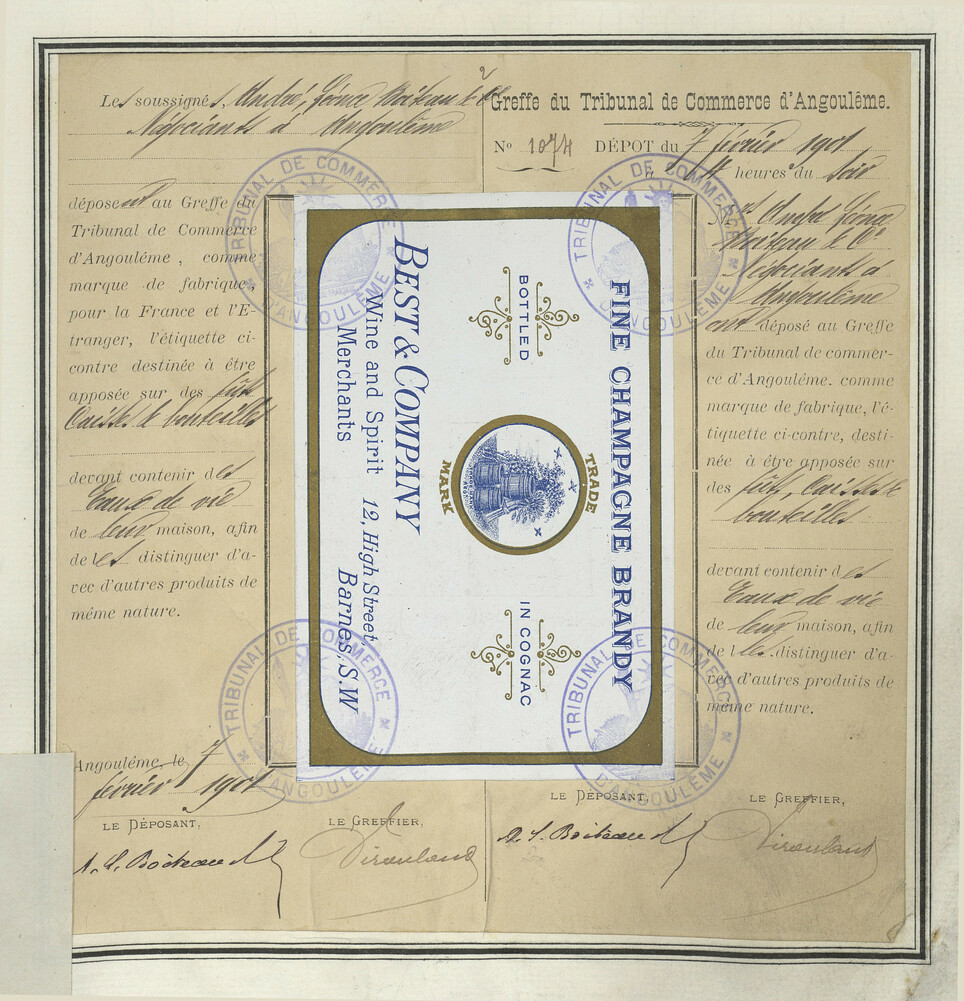 Les soussignés, André, Géonce Boiteau & Cie
Négociants à Angoulême
déposent au Greffe du
Tribunal de Commerce
d'Angoulême, comme
marque de fabrique,
pour la France et l'E-
tranger, l'étiquette ci-
contre destinée à être
apposée sur des fûts
Caisses & bouteilles
devant contenir des
Eaux de vie
de leur maison, afin
de les distinguer d'a-
vec d'autres produits de
même nature.
Angoulême, le 7
février 1901
LE DÉPOSANT,
LE GREFFIER,
2
Greffe du Tribunal de Commerce d'Angoulême.
No 1074 DÉPOT du 7 février 1901
heures du soir
Négociants à
Angoulême
ont déposé au Greffe
du Tribunal de commer-
ce d'Angoulême. comme
marque de fabrique, l'é-
tiquette ci-contre, desti-
née à être apposée sur
des fûts, Caisses &
bouteilles
devant contenir des
Eaux de vie
de leur maison, afin
de les distinguer d'a-
vec d'autres produits de
même nature.
LE DÉPOSANT,
LE GREFFIER,
FINE CHAMPAGNE BRANDY
BOTTLED
IN COGNAC
TRADE
MARK
BEST & COMPANY
Wine and Spirit
Merchants
12, High Street
Barnes, S.W
TRIBUNAL DE COMMERCE
D'ANGOULÊME
TRIBUNAL DE COMMERCE
D'ANGOULÊME
TRIBUNAL DE COMMERCE
D'ANGOULÊME
TRIBUNAL DE COMMERCE
D'ANGOULÊME